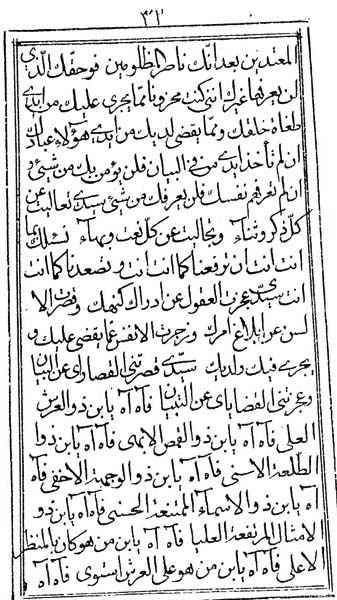 ٣١٢
المعتدين بعد انّك ناظر المظلومين فوحقّك الّذي
لن يعرفها غيرك انّني كنت محزونا ممّا يجري عليك من ايدي
طغاة خلقك وممّا يقضي لديك من ايدي هؤلاء عبادك
ان لم تأخذ ايدي من في البيان فلن يؤمن بك من شيئ و
ان لم تعرّفهم نفسك فلن يعرفك من شيئ سيّدي تعاليت عن
كلّ ذكر وثناء وتجاليت عن كلّ نعت وبهاء نسئلك بما
انت انت ان ترفعنا كما انت انت وتصعدنا كما انت
انت سيّدي عجزت العقول عن ادراك كنهك وقصرت الا
لسن عن ابلاغ امرك وزجرت الانفس عمّا يقضي عليك و
يجري فيك ولديك سيّدي قصرتني القصاراي عن البيان
وعجزتني القضاياي عن التبيان فآه آه يا بن ذو العرش
العلي فآه آه يا بن ذو القمص الابهى فآه آه يا بن ذو ا
لطلعة الاسنى فآه آه يا بن ذو الوجهة الاخفى فآه
آه يا بن ذو الاسماء الممتنعة الحسنى فآه آه يا بن ذو
الامثال المرتفعة العليا فآه آه يا بن من هو كان بالمنظر
الاعلى فآه آه يا بن من هو على العرش استوى فآه آه